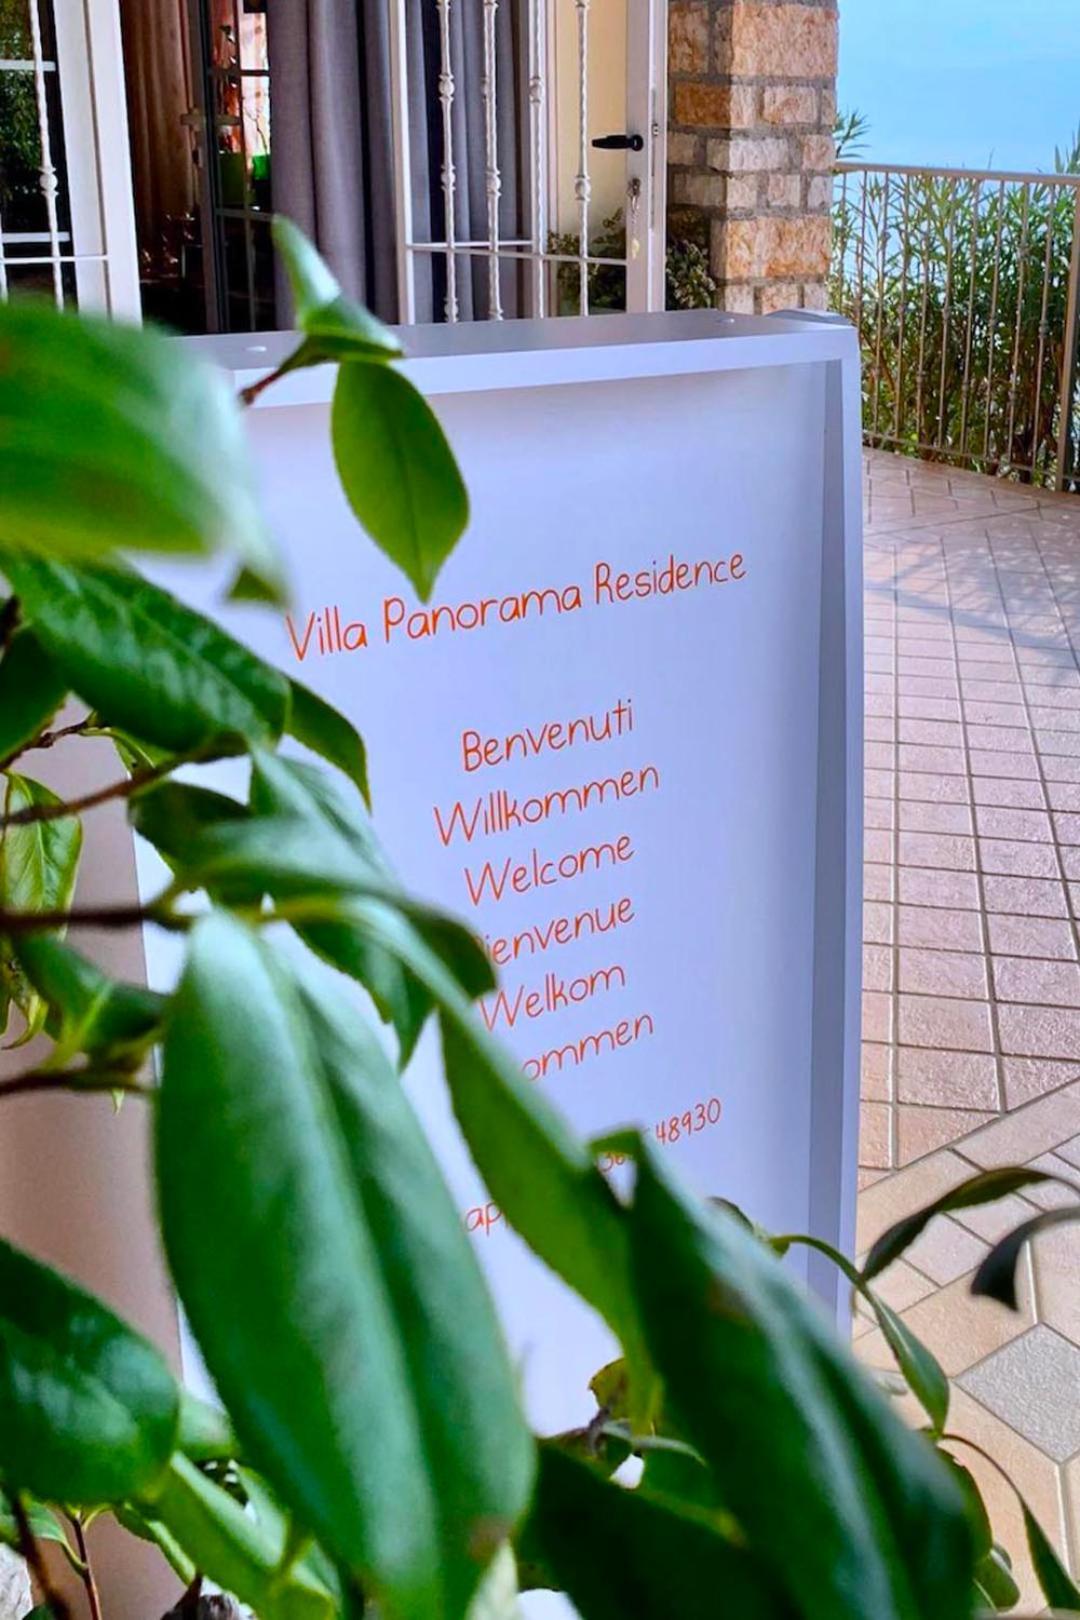 Villa Panorama Residence
Benvenuti
Willkommen
Welcome
Bienvenue
Welkom
48930